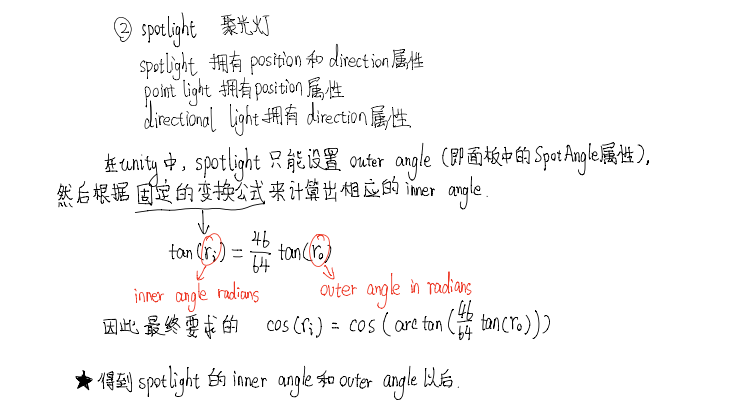 ② spotlight 聚光灯
spotlight 拥有 position 和 direction 属性
point light 拥有 position 属性
directional light 拥有 direction 属性
在unity中, spotlight 只能设置 outer angle (即面板中的SpotAngle属性),
然后根据固定的变换公式来计算出相应的 inner angle.
tan(rᵢ) = 46/64 tan(r₀)
inner angle radians
outer angle in radians
因此最终要求的 cos(rᵢ) = cos(arctan(46/64 tan(r₀)))
★ 得到 spotlight 的 inner angle 和 outer angle 以后.